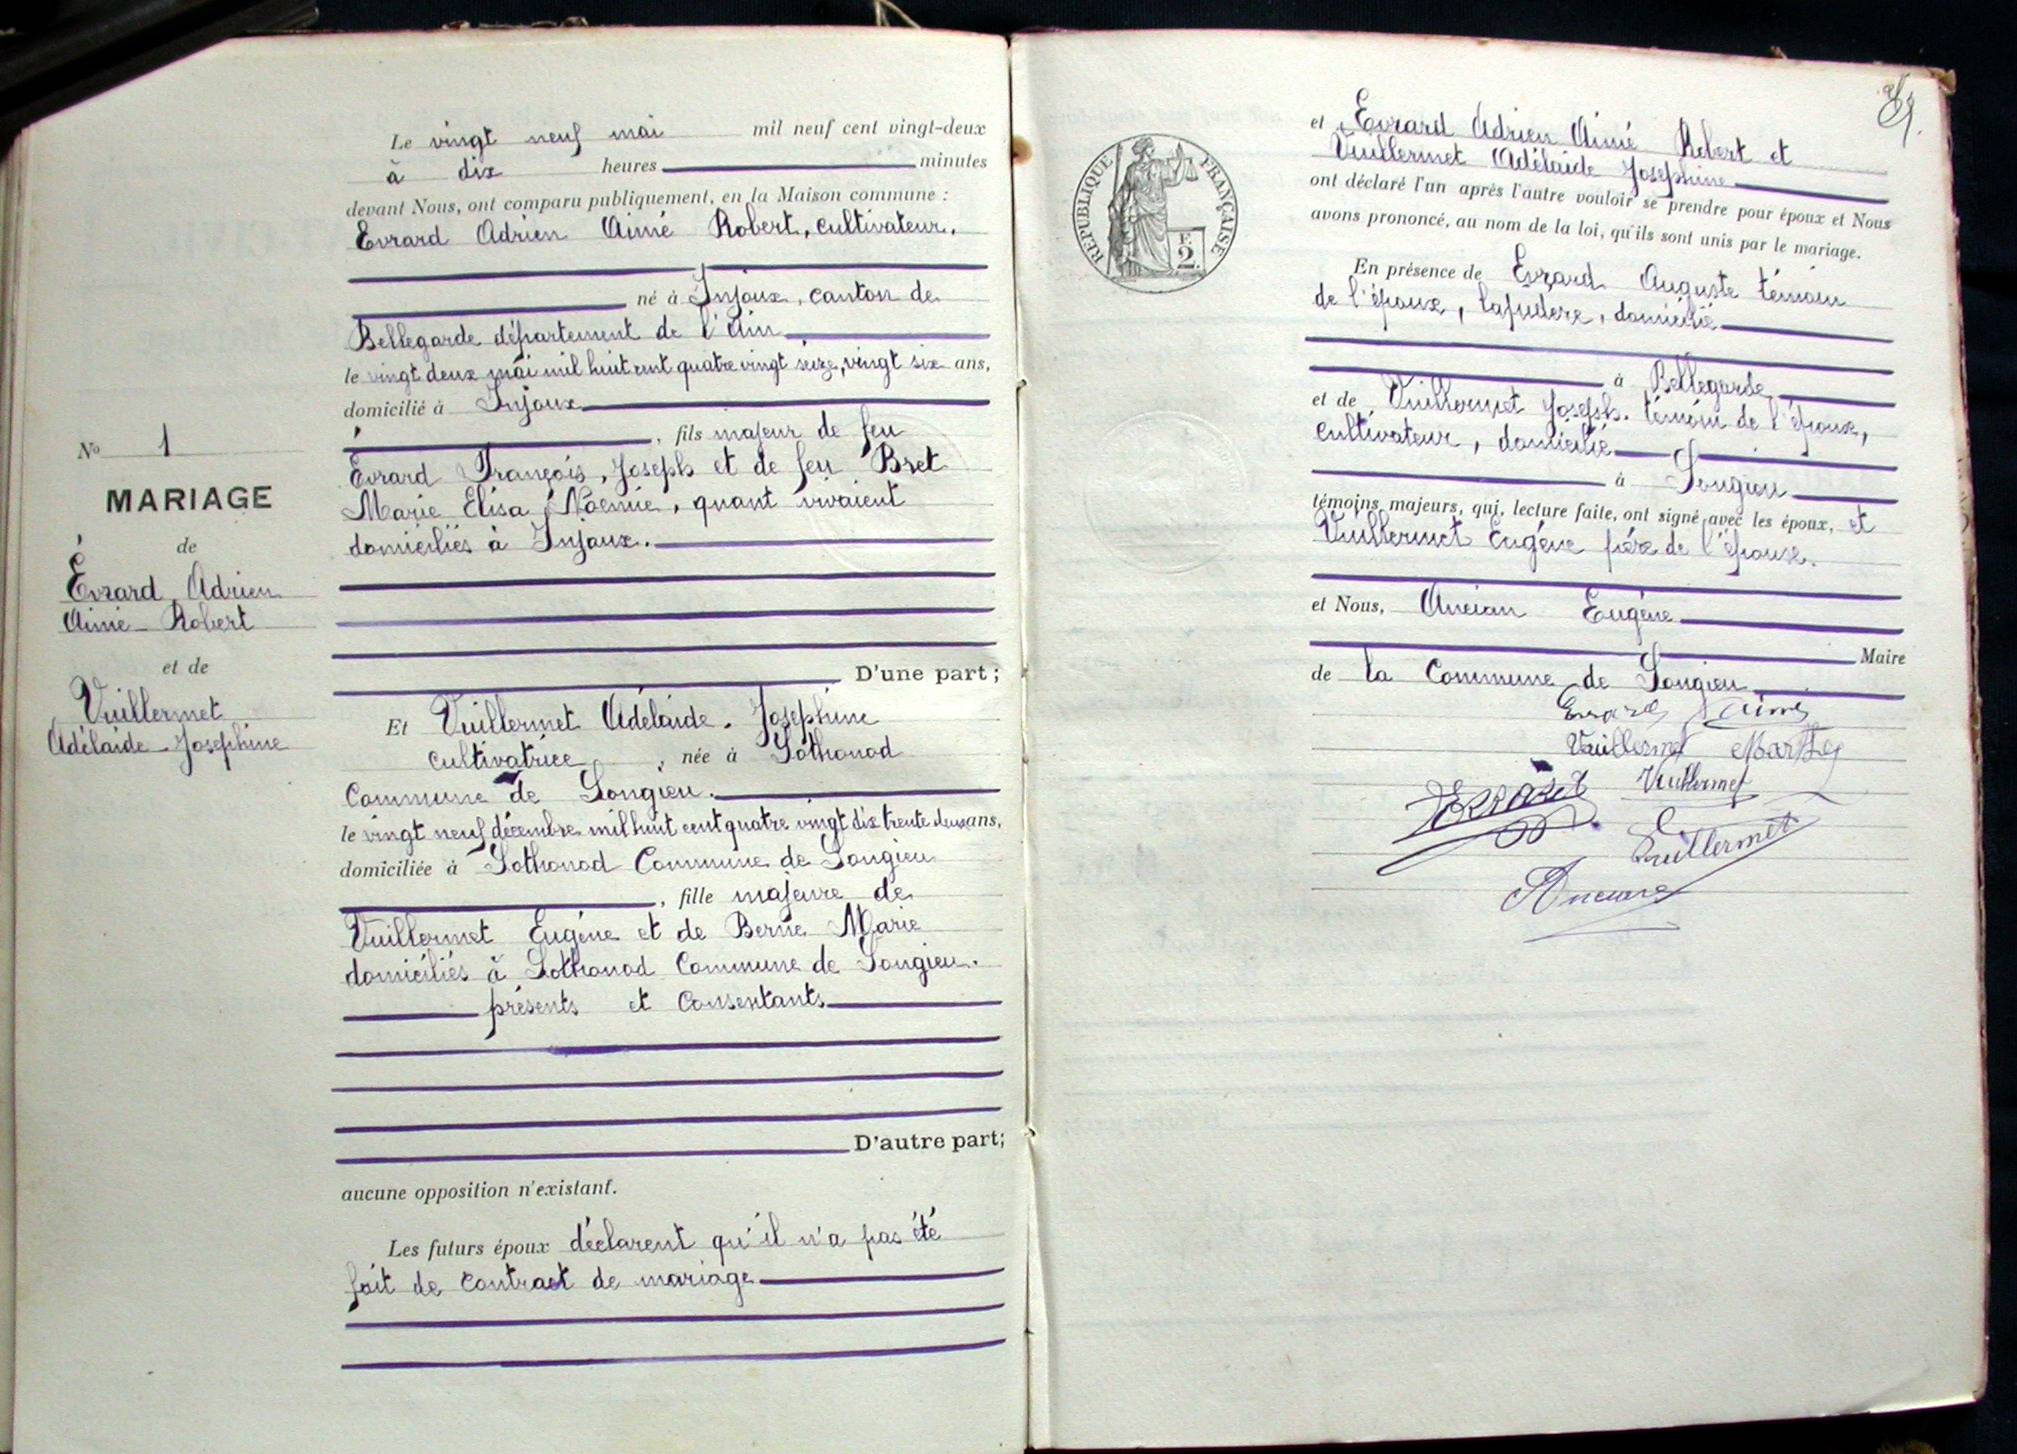 Le vingt neuf mai mil neuf cent vingt-deux
à dix heures minutes
devant Nous, ont comparu publiquement, en la Maison commune :
Evrard Adrien Aimé Robert, cultivateur.
né à Injoux, canton de
Bellegarde département de l'Ain
le vingt deux mai mil huit cent quatre vingt seize, vingt six ans,
domicilié à Injoux
, fils majeur de feu
Evrard François, Joseph et de feu Bret
Marie Elisa Noémie, quant vivaient
domiciliés à Injoux.
D'une part ;
Et Vuillermet Adélaïde. Josephine
cultivatrice, née à Sothonod
Commune de Songieu.
le vingt neuf décembre mil huit cent quatre vingt dix trente deux ans,
domiciliée à Sothonod Commune de Songieu
, fille majeure de
Vuillermet Eugène et de Berne Marie
domiciliés à Sothonod Commune de Songieu.
présents et Consentants
D'autre part ;
aucune opposition n'existant.
Les futurs époux déclarent qu'il n'a pas été
fait de contract de mariage
No 1
MARIAGE
de
Évrard Adrien
Aimé Robert
et de
Vuillermet
Adélaïde Josephine
RÉPUBLIQUE FRANÇAISE
F.
2
et Evrard Adrien Aimé Robert et
Vuillermet Adélaïde Josephine
ont déclaré l'un après l'autre vouloir se prendre pour époux et Nous
avons prononcé, au nom de la loi, qu'ils sont unis par le mariage.
En présence de Evrard Auguste témoin
de l'époux, domicilié
à Bellegarde
et de Vuillermet Joseph. témoin de l'épouse,
cultivateur, domicilié
à Songieu
témoins majeurs, qui, lecture faite, ont signé avec les époux, et
Vuillermet Eugène père de l'épouse.
et Nous, Ancian Eugène
Maire
de la Commune de Songieu
Evrard Aimé
Vuillermet Marthe
Evrard Vuillermet
Vuillermet